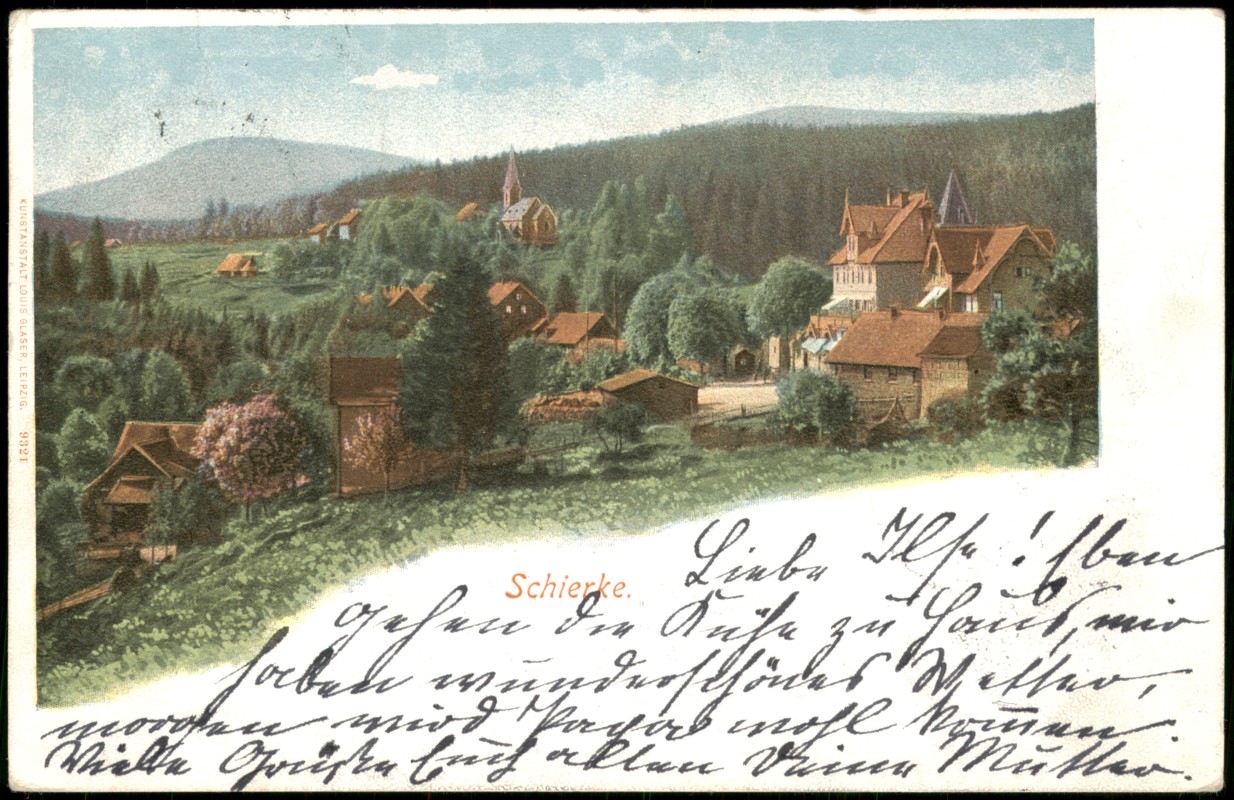 KUNSTANSTALT LOUIS GLASER, LEIPZIG. 9321
Schierke.
Liebe Ilse! Eben
gehen die Kühe zu Haus, wir
haben wunderschönes Wetter,
morgen wird Papa wohl kommen.
Viele Grüße Euch allen Deine Mutter.